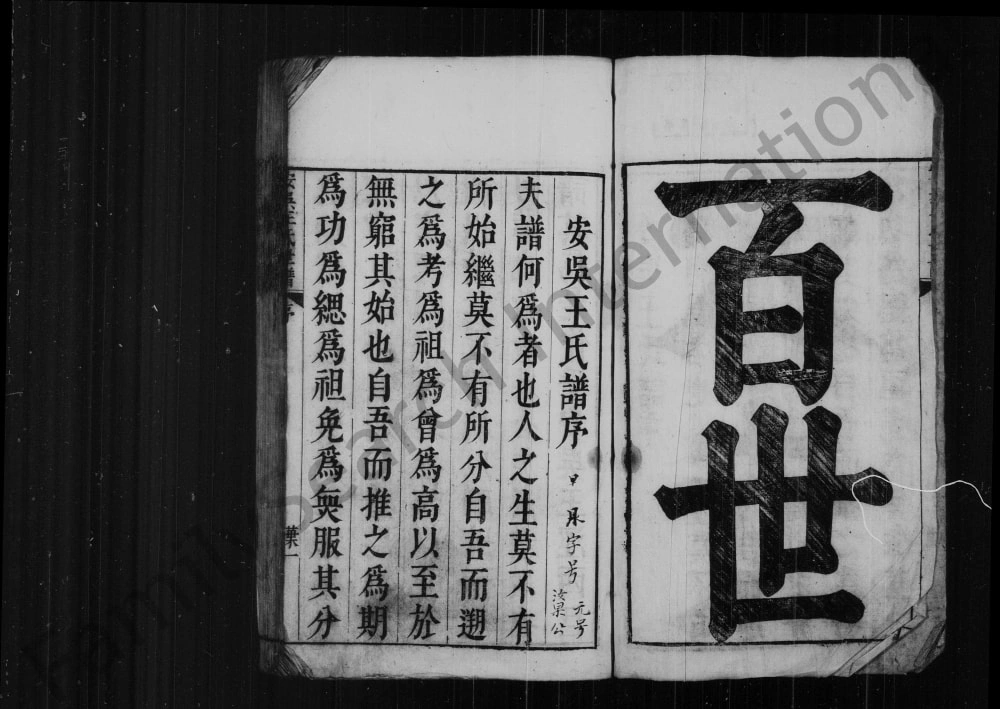 百世
安吳王氏譜序
字号
元号
公
夫譜何爲者也人之生莫不有
所始繼莫不有所分自吾而遡
之爲考爲祖爲曾爲高以至於
無窮其始也自吾而推之爲期
爲功爲緦爲袒免爲無服其分
序
葉一
Family Search International